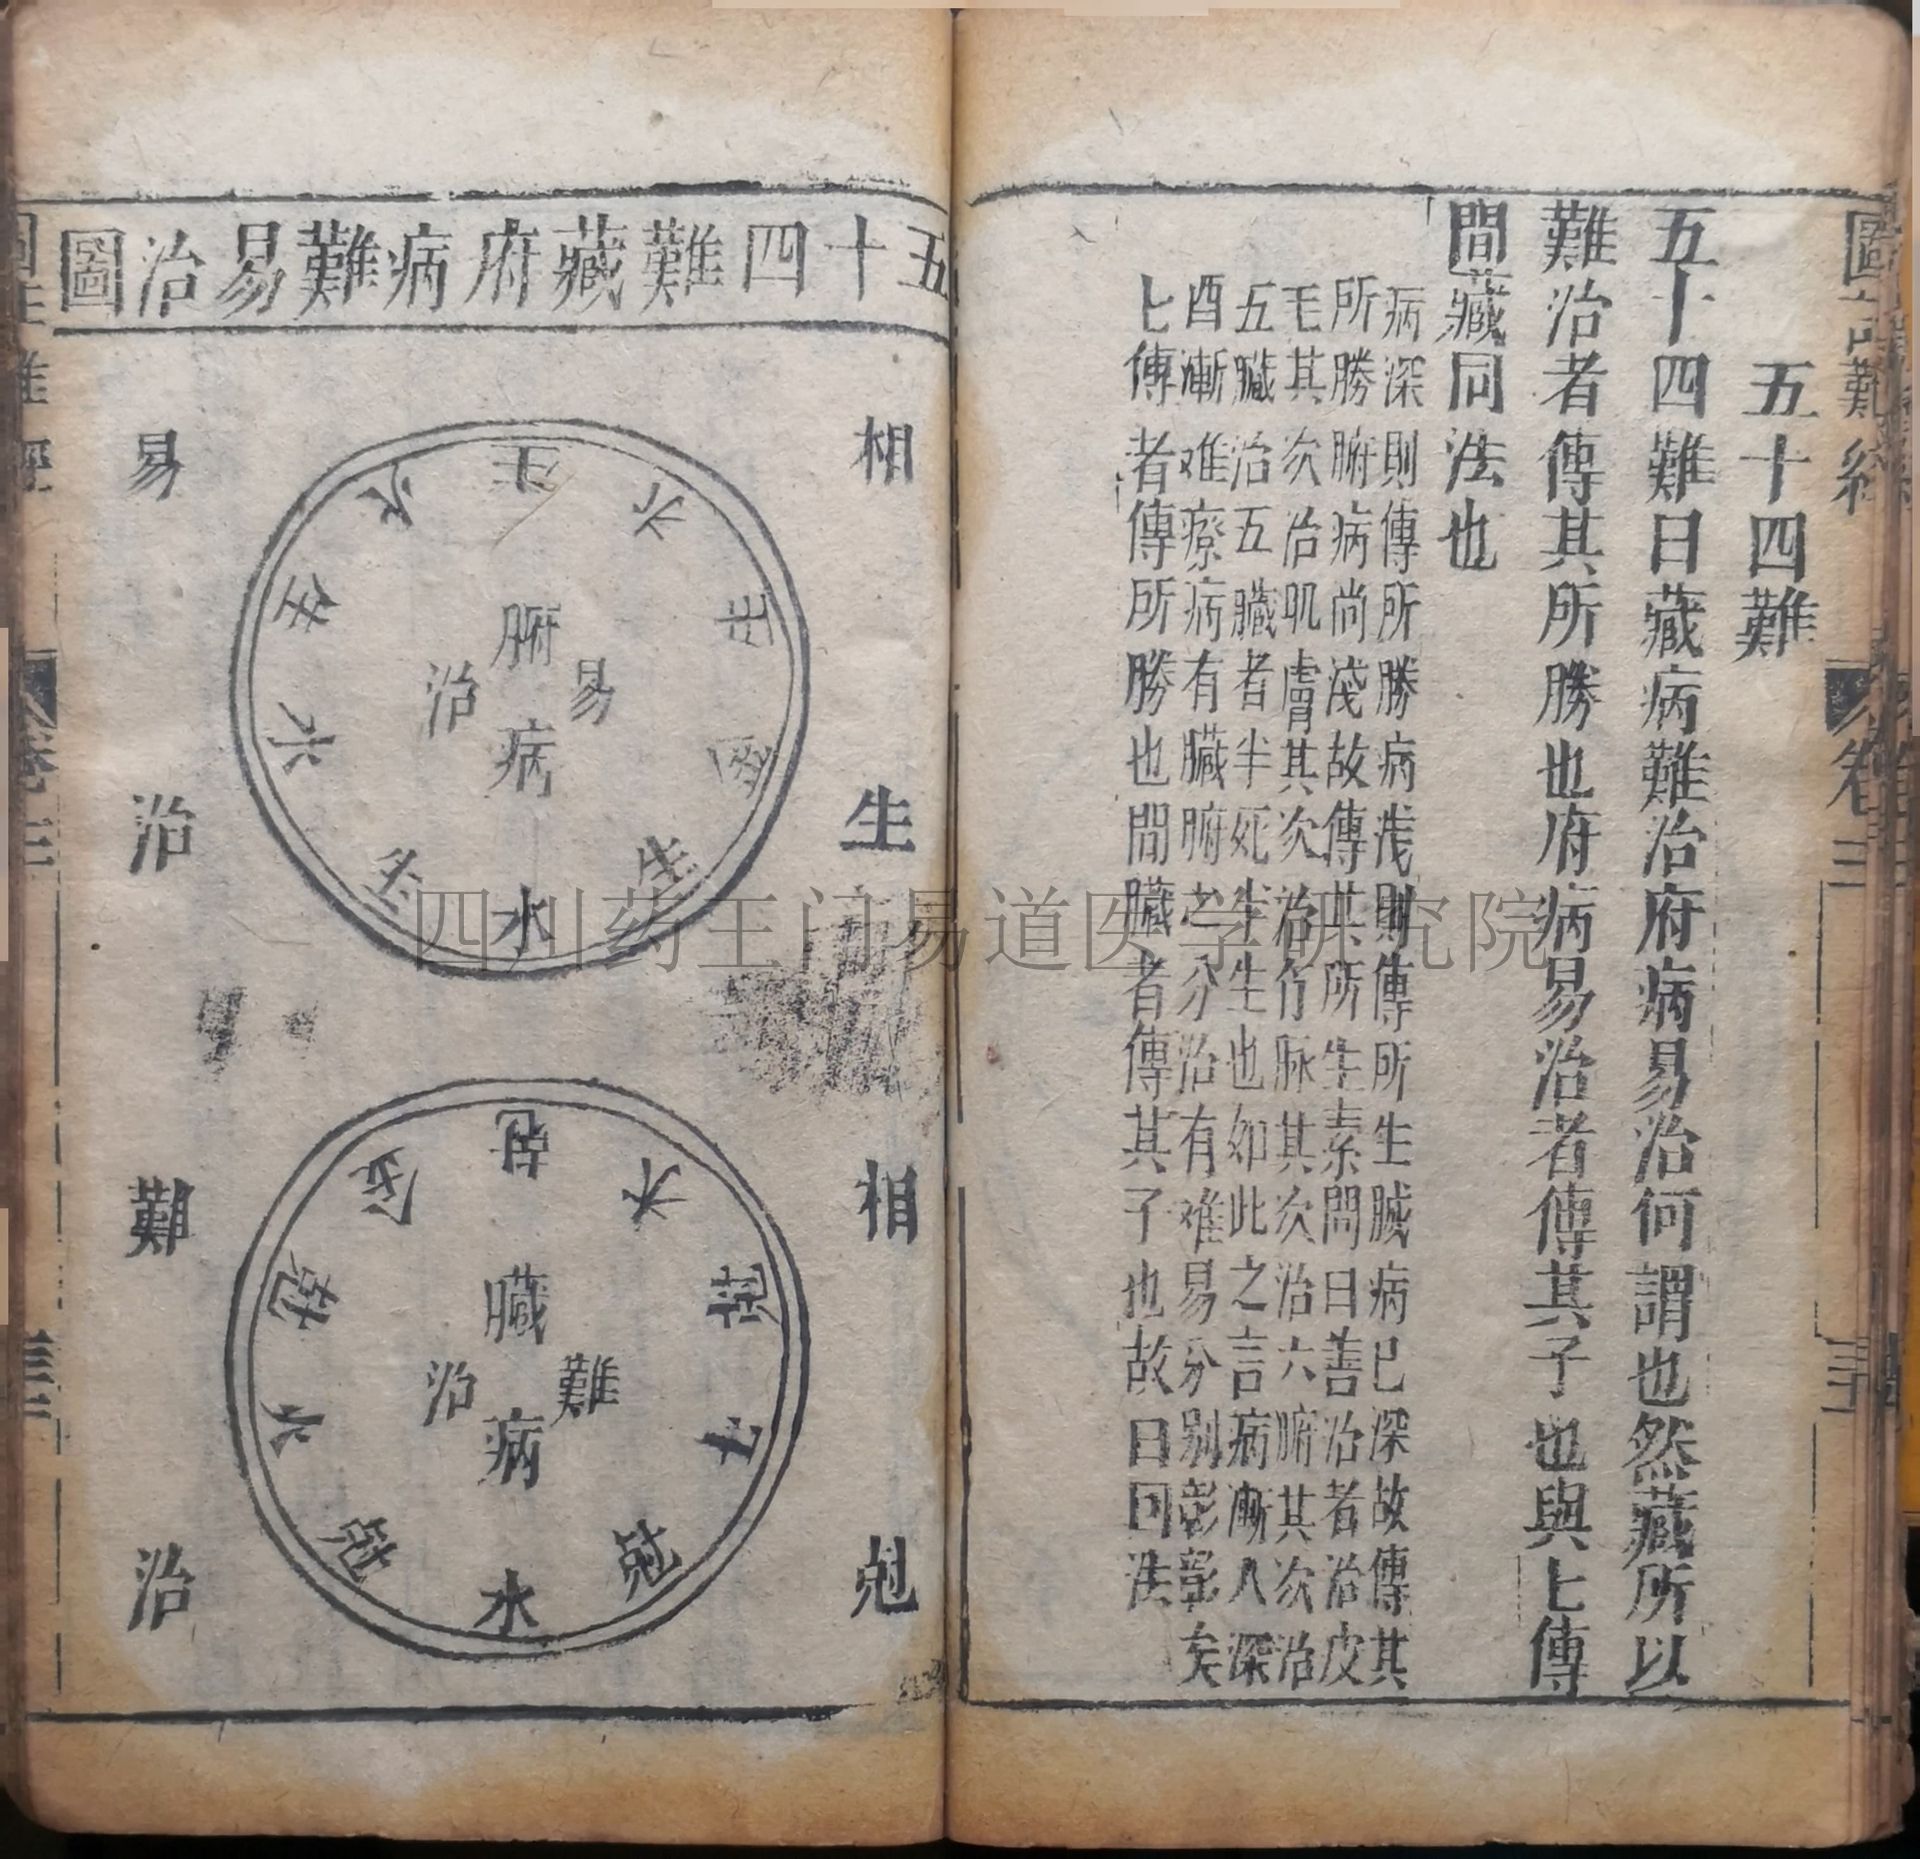 五十四難
五十四難曰藏病難治府病易治何謂也然藏所以
難治者傳其所勝也府病易治者傳其子也與七傳
間藏同法也
病深則傳所勝病浅則傳所生臓病已深故傳其
所勝腑病尚淺故傳其所生素問曰善治者治皮
毛其次治肌膚其次治筋脉其次治六腑其次治
五臟治五臟者半死半生也如此之言病漸入深
酉漸难療病有臟腑之分治有难易分別彰彰矣
七傳者傳所勝也間臟者傳其子也故曰同法
卷三
五十四難藏府病難易治圖
相生
易治
火
生
木
生
水
生
金
生
土
生
水
腑病易治
相尅
難治
尅
木
尅
土
尅
水
尅
火
尅
金
臟病難治
四川药王门易道医学研究院